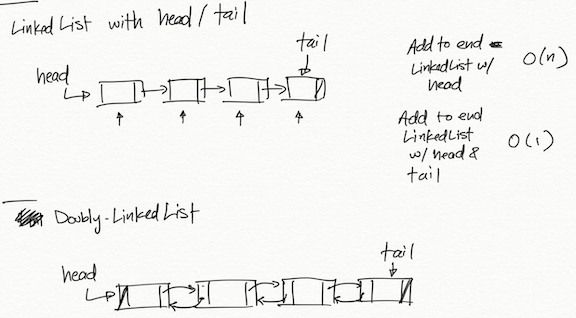 Linked List with head / tail
tail
head
Add to end
LinkedList w/
head
O(n)
Add to end
LinkedList
w/ head &
tail
O(1)
Doubly-LinkedList
tail
head